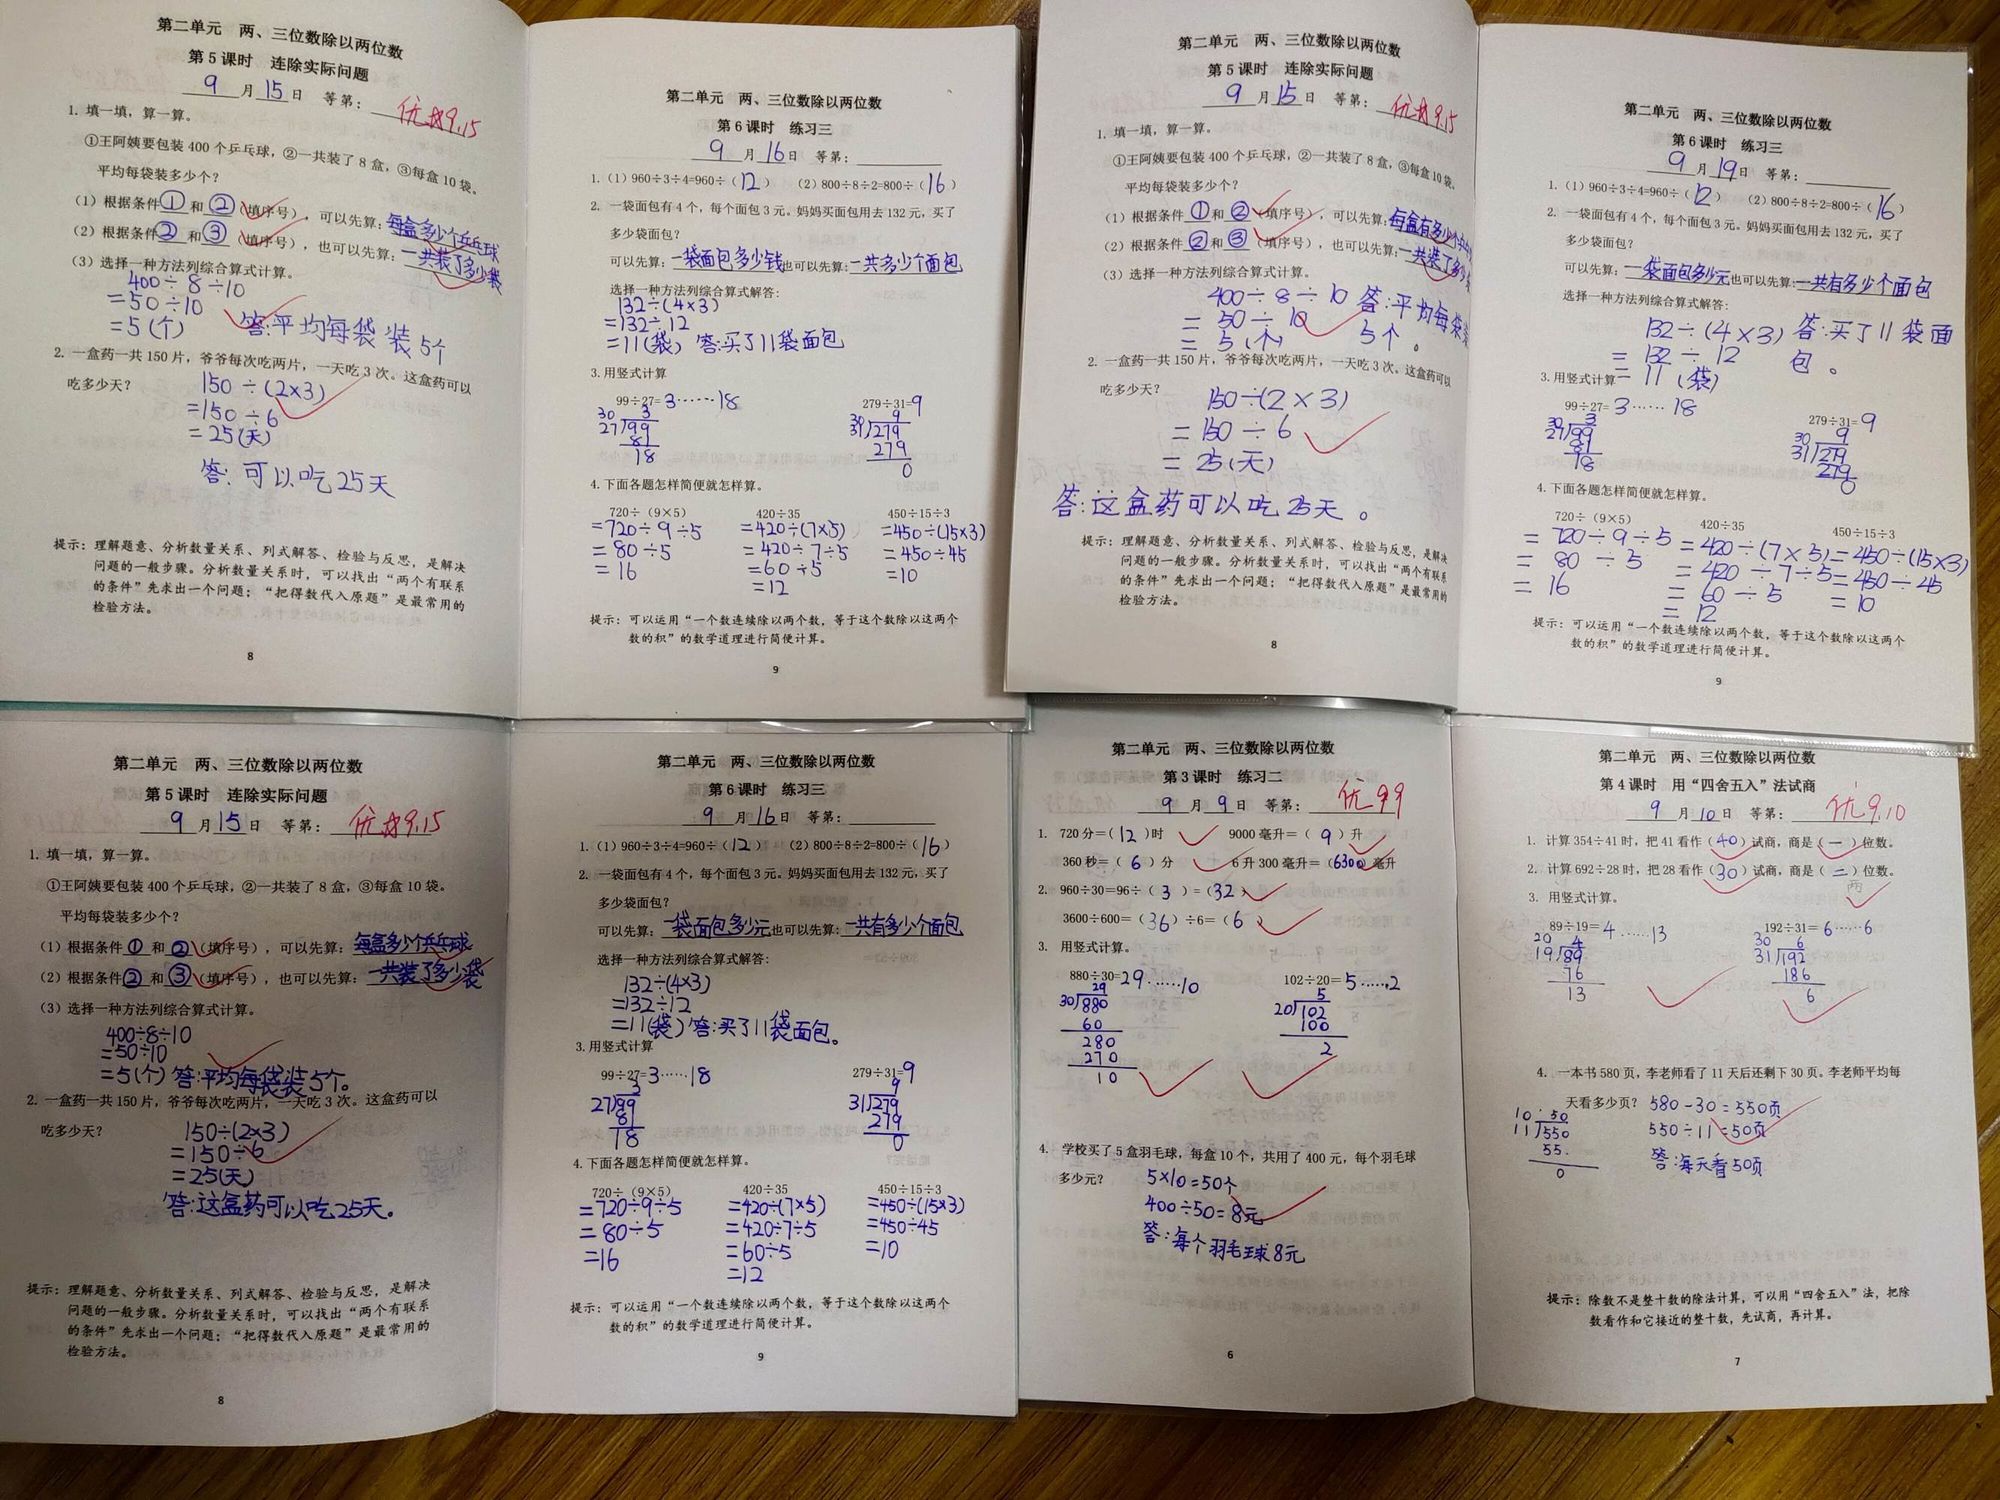 第二单元 两、三位数除以两位数
第5课时 连除实际问题
9月15日 等第: 优 9.15
1. 填一填，算一算。
①王阿姨要包装400个乒乓球，②一共装了8盒，③每盒10袋。
平均每袋装多少个?
(1) 根据条件①和②(填序号)，可以先算:每盒多少个乒乓球
(2) 根据条件②和③(填序号)，也可以先算:一共装了多少袋
(3) 选择一种方法列综合算式计算。
400÷8÷10
=50÷10
=5(个) 答:平均每袋装5个
2. 一盒药一共150片，爷爷每次吃两片，一天吃3次。这盒药可以
吃多少天?
150÷(2×3)
=150÷6
=25(天)
答:可以吃25天
提示: 理解题意、分析数量关系、列式解答、检验与反思，是解决
问题的一般步骤。分析数量关系时，可以找出“两个有联系
的条件”先求出一个问题;“把得数代入原题”是最常用的
检验方法。
8
第二单元 两、三位数除以两位数
第6课时 练习三
9月16日 等第:
1. (1) 960÷3÷4=960÷(12) (2) 800÷8÷2=800÷(16)
2. 一袋面包有4个，每个面包3元。妈妈买面包用去132元，买了
多少袋面包?
可以先算:一袋面包多少钱也可以先算:一共多少个面包
选择一种方法列综合算式解答:
132÷(4×3)
=132÷12
=11(袋) 答:买了11袋面包
3. 用竖式计算
99÷27=3……18 279÷31=9
30 3 9
27 99 31 279
81 279
18 0
4. 下面各题怎样简便就怎样算。
720÷(9×5) 420÷35 450÷15÷3
=720÷9÷5 =420÷(7×5) =450÷(15×3)
=80÷5 =420÷7÷5 =450÷45
=16 =60÷5 =10
=12
提示: 可以运用“一个数连续除以两个数，等于这个数除以这两个
数的积”的数学道理进行简便计算。
9
第二单元 两、三位数除以两位数
第5课时 连除实际问题
9月15日 等第: 优 9.15
1. 填一填，算一算。
①王阿姨要包装400个乒乓球，②一共装了8盒，③每盒10袋。
平均每袋装多少个?
(1) 根据条件①和②(填序号)，可以先算:每盒有多少个
(2) 根据条件②和③(填序号)，也可以先算:一共装了多少
(3) 选择一种方法列综合算式计算。
400÷8÷10 答:平均每袋装
=50÷10 5个。
=5(个)
2. 一盒药一共150片，爷爷每次吃两片，一天吃3次。这盒药可以
吃多少天?
150÷(2×3)
=150÷6
=25(天)
答:这盒药可以吃25天。
提示: 理解题意、分析数量关系、列式解答、检验与反思，是解决
问题的一般步骤。分析数量关系时，可以找出“两个有联系
的条件”先求出一个问题;“把得数代入原题”是最常用的
检验方法。
8
第二单元 两、三位数除以两位数
第6课时 练习三
9月19日 等第:
1. (1) 960÷3÷4=960÷(12) (2) 800÷8÷2=800÷(16)
2. 一袋面包有4个，每个面包3元。妈妈买面包用去132元，买了
多少袋面包?
可以先算:一袋面包多少元也可以先算:一共有多少个面包
选择一种方法列综合算式解答:
132÷(4×3) 答:买了11袋面
=132÷12 包。
3. 用竖式计算 =11(袋)
99÷27=3……18 279÷31=9
30 3 30 9
27 99 31 279
81 279
18 0
4. 下面各题怎样简便就怎样算。
720÷(9×5) 420÷35 450÷15÷3
=720÷9÷5 =420÷(7×5) =450÷(15×3)
=80÷5 =420÷7÷5 =450÷45
=16 =60÷5 =10
=12
提示: 可以运用“一个数连续除以两个数，等于这个数除以这两个
数的积”的数学道理进行简便计算。
9
第二单元 两、三位数除以两位数
第5课时 连除实际问题
9月15日 等第: 优 9.15
1. 填一填，算一算。
①王阿姨要包装400个乒乓球，②一共装了8盒，③每盒10袋。
平均每袋装多少个?
(1) 根据条件①和②(填序号)，可以先算:每盒多少个乒乓球
(2) 根据条件②和③(填序号)，也可以先算:一共装了多少袋
(3) 选择一种方法列综合算式计算。
400÷8÷10
=50÷10
=5(个) 答:平均每袋装5个。
2. 一盒药一共150片，爷爷每次吃两片，一天吃3次。这盒药可以
吃多少天?
150÷(2×3)
=150÷6
=25(天)
答:这盒药可以吃25天。
提示: 理解题意、分析数量关系、列式解答、检验与反思，是解决
问题的一般步骤。分析数量关系时，可以找出“两个有联系
的条件”先求出一个问题;“把得数代入原题”是最常用的
检验方法。
8
第二单元 两、三位数除以两位数
第6课时 练习三
9月16日 等第:
1. (1) 960÷3÷4=960÷(12) (2) 800÷8÷2=800÷(16)
2. 一袋面包有4个，每个面包3元。妈妈买面包用去132元，买了
多少袋面包?
可以先算:一袋面包多少元也可以先算:一共有多少个面包
选择一种方法列综合算式解答:
132÷(4×3)
=132÷12
=11(袋) 答:买了11袋面包。
3. 用竖式计算
99÷27=3……18 279÷31=9
3 9
27 99 31 279
81 279
18 0
4. 下面各题怎样简便就怎样算。
720÷(9×5) 420÷35 450÷15÷3
=720÷9÷5 =420÷(7×5) =450÷(15×3)
=80÷5 =420÷7÷5 =450÷45
=16 =60÷5 =10
=12
提示: 可以运用“一个数连续除以两个数，等于这个数除以这两个
数的积”的数学道理进行简便计算。
9
第二单元 两、三位数除以两位数
第3课时 练习二
9月9日 等第: 优 9.9
1. 720分=(12)时 9000毫升=(9)升
360秒=(6)分 6升300毫升=(6300)毫升
2. 960÷30=96÷(3)=(32)
3600÷600=(36)÷6=(6)
3. 用竖式计算。
880÷30=29……10 102÷20=5……2
29 5
30 880 20 102
60 100
280 2
270
10
4. 学校买了5盒羽毛球，每盒10个，共用了400元，每个羽毛球
多少元? 5×10=50个
400÷50=8元
答:每个羽毛球8元
6
第二单元 两、三位数除以两位数
第4课时 用“四舍五入”法试商
9月10日 等第: 优 9.10
1. 计算354÷41时，把41看作(40)试商，商是(一)位数。
2. 计算692÷28时，把28看作(30)试商，商是(二)位数。
两
3. 用竖式计算。
89÷19=4……13 192÷31=6……6
20 4 30 6
19 89 31 192
76 186
13 6
4. 一本书580页，李老师看了11天后还剩下30页。李老师平均每
天看多少页? 580-30=550页
10 50 550÷11=50页
11 550 答:每天看50页
55
0
提示: 除数不是整十数的除法计算，可以用“四舍五入”法，把除
数看作和它接近的整十数，先试商，再计算。
7